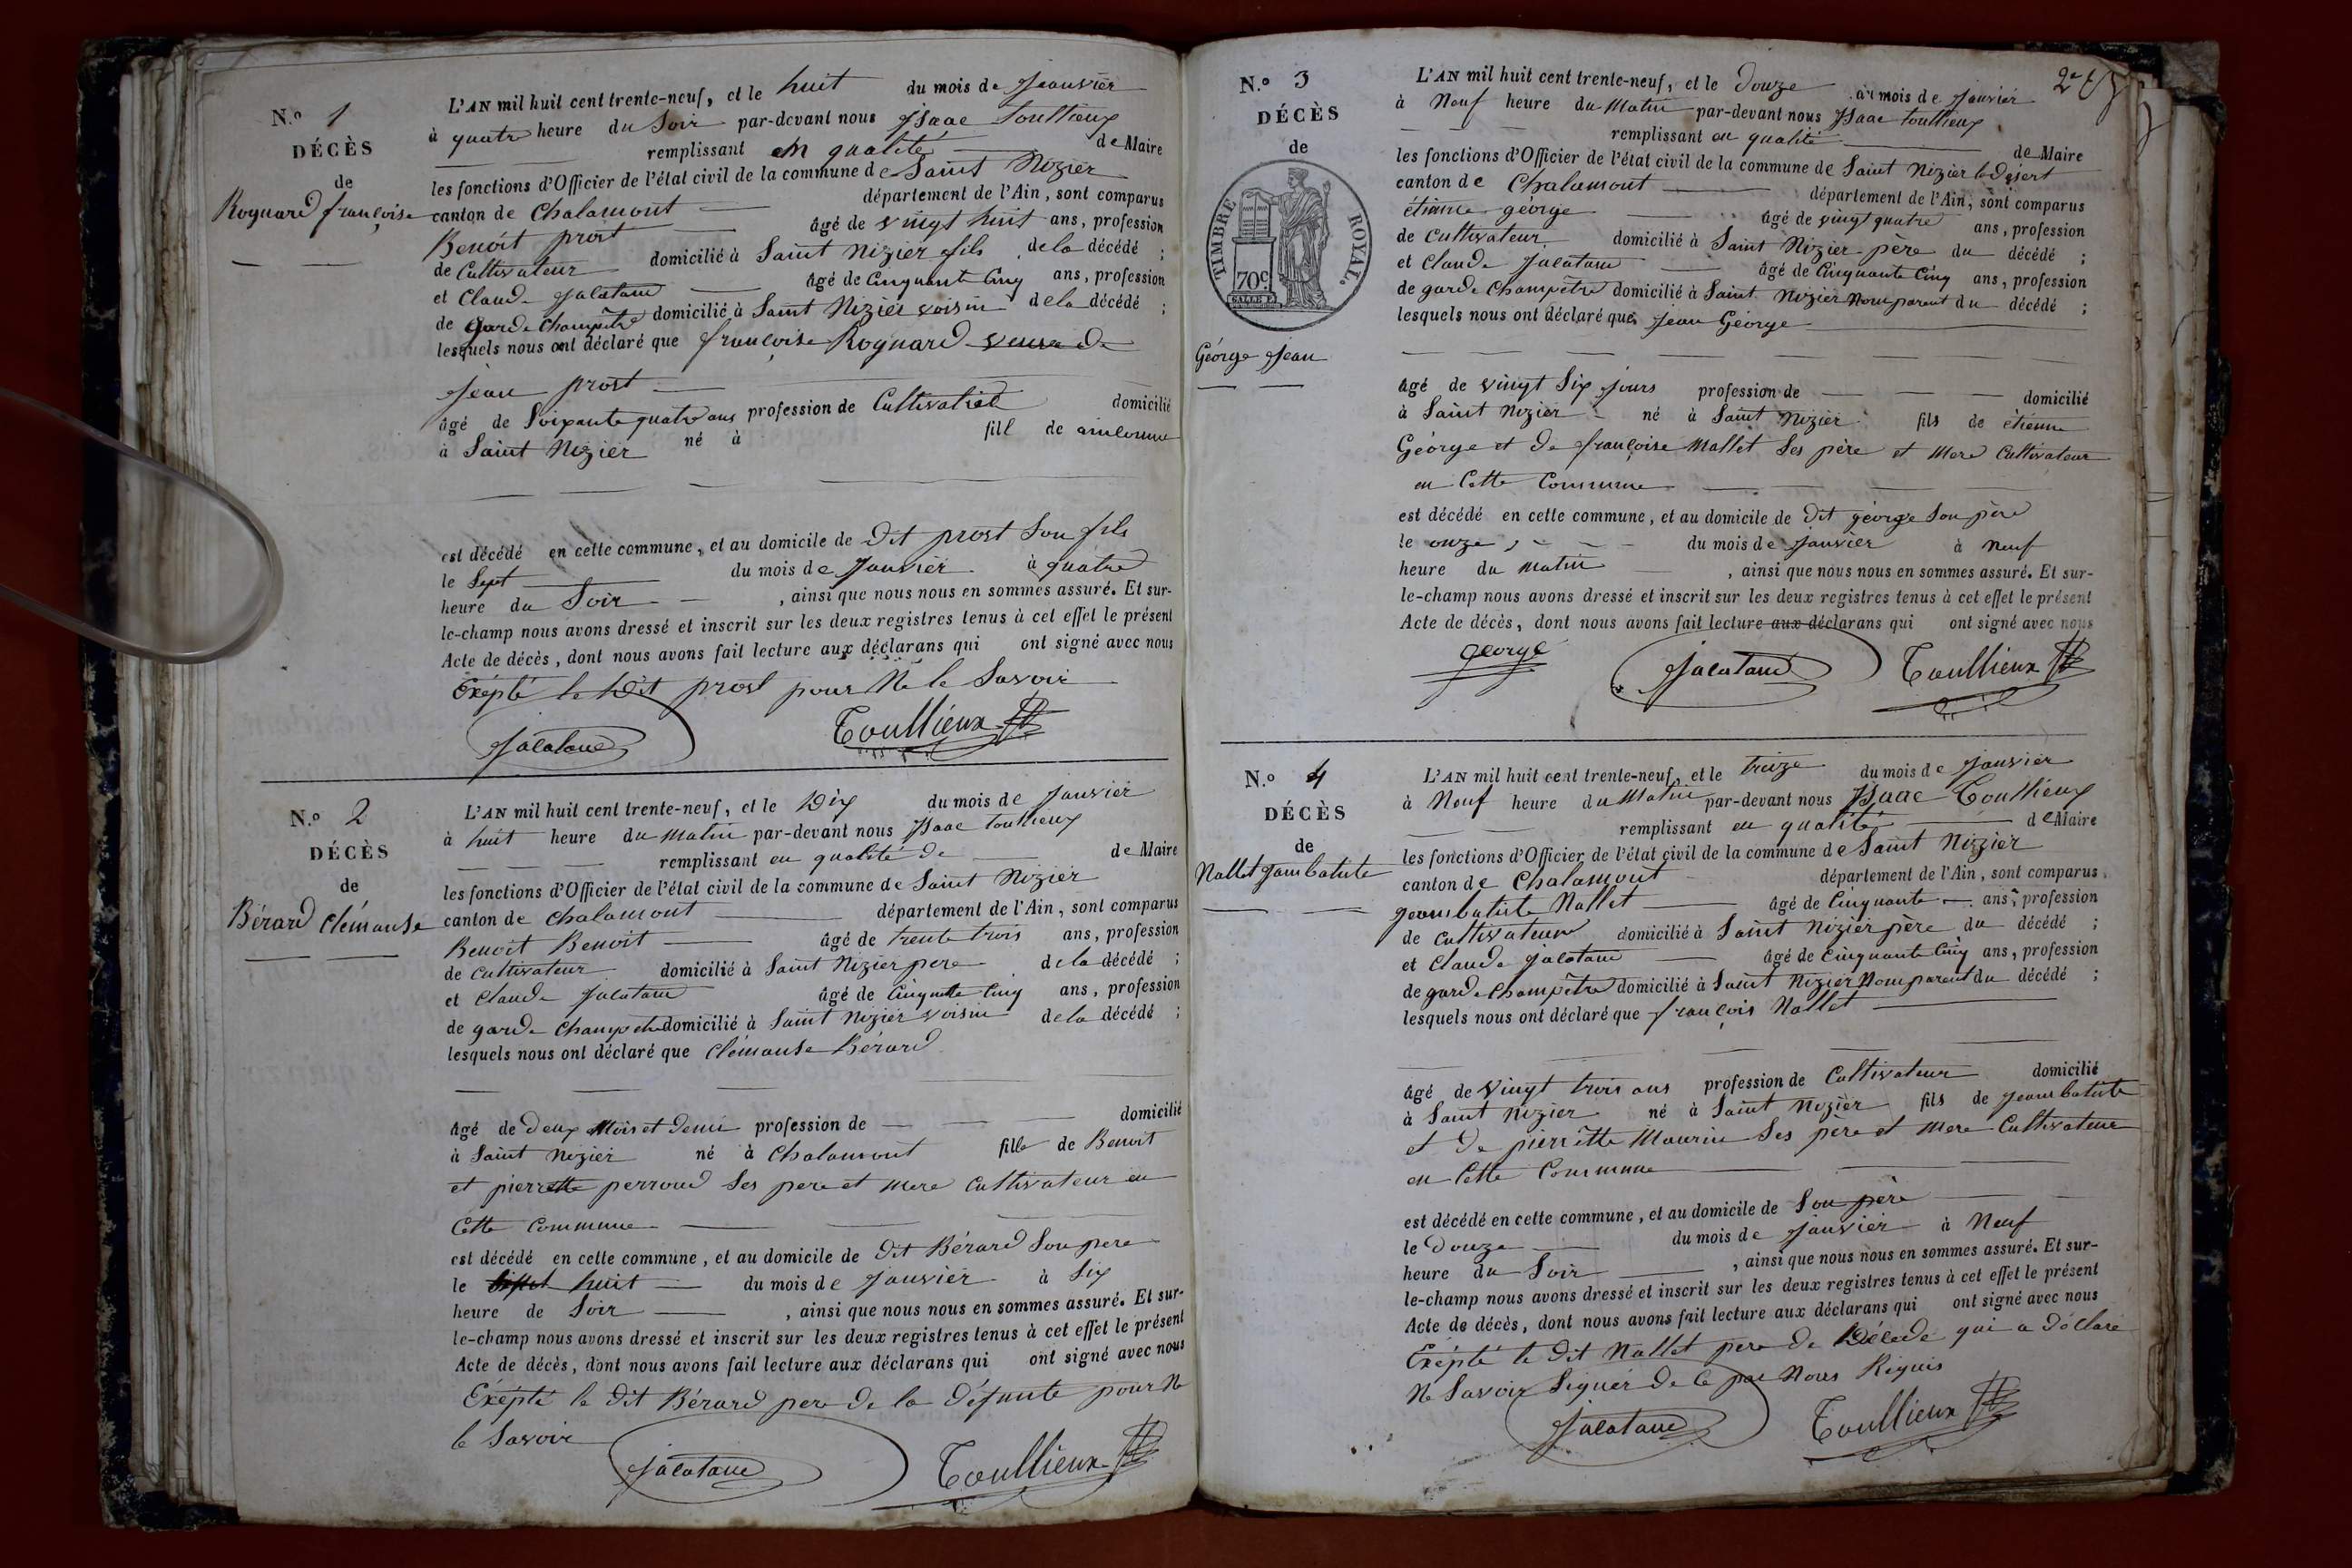 N.º 1
DÉCÈS
de
Rognard françoise
L'AN mil huit cent trente-neuf, et le huit du mois de Jeanvier
à quatre heure du Soir par-devant nous Isaac Toullieux
remplissant en qualité de Maire
les fonctions d'Officier de l'état civil de la commune de Saint Nizier
canton de Chalamont département de l'Ain, sont comparus
Benoit prost âgé de vingt huit ans, profession
de Cultivateur domicilié à Saint Nizier fils de la décédé ;
et Claude Jalatane âgé de Cinquante Cinq ans, profession
de garde Champêtre domicilié à Saint Nizier voisin de la décédé ;
lesquels nous ont déclaré que françoise Rognard veuve de
Jean prost
âgé de Soixante quatre ans profession de Cultivatrice domicilié
à Saint Nizier né à fill de
est décédé en cette commune, et au domicile de Dit prost Son fils
le Sept du mois de Janvier à quatre
heure du Soir , ainsi que nous nous en sommes assuré. Et sur-
le-champ nous avons dressé et inscrit sur les deux registres tenus à cet effet le présent
Acte de décès, dont nous avons fait lecture aux déclarans qui ont signé avec nous
Exépté le Dit prost pour Ne le Savoir
Jalatane Toullieux
N.º 2
DÉCÈS
de
Bérard Clémanse
L'AN mil huit cent trente-neuf, et le Dix du mois de Janvier
à huit heure du Matin par-devant nous Isaac Toullieux
remplissant en qualité de de Maire
les fonctions d'Officier de l'état civil de la commune de Saint Nizier
canton de Chalamont département de l'Ain, sont comparus
Benoit Benoit âgé de trente trois ans, profession
de Cultivateur domicilié à Saint Nizier pere de la décédé ;
et Claude Jalatane âgé de Cinquette Cinq ans, profession
de garde Champetre domicilié à Saint Nizier voisin de la décédé ;
lesquels nous ont déclaré que Clémanse Bérard
âgé de Deux Mois et Demi profession de domicilié
à Saint Nizier né à Chalamont fille de Benoit
et pierrette perroud Ses pere et mere Cultivateur en
Cette Commune
est décédé en cette commune, et au domicile de Dit Bérard Son pere
le huit du mois de Janvier à Six
heure de Soir , ainsi que nous nous en sommes assuré. Et sur-
le-champ nous avons dressé et inscrit sur les deux registres tenus à cet effet le présent
Acte de décès, dont nous avons fait lecture aux déclarans qui ont signé avec nous
Exépté le Dit Bérard pere De la Défunte pour Ne
le Savoir
Jalatane Toullieux
N.º 3
DÉCÈS
de
TIMBRE ROYAL.
70c
George Jean
L'AN mil huit cent trente-neuf, et le Douze du mois de Janvier
à Neuf heure du Matin par-devant nous Isaac Toullieux
remplissant en qualité de Maire
les fonctions d'Officier de l'état civil de la commune de Saint Nizier le Désert
canton de Chalamont département de l'Ain, sont comparus
étienne géorge âgé de vingt quatre ans, profession
de Cultivateur domicilié à Saint Nizier père du décédé ;
et Claude Jalatane âgé de Cinquante Cinq ans, profession
de garde Champêtre domicilié à Saint Nizier Nom parent du décédé ;
lesquels nous ont déclaré que Jean Géorge
âgé de vingt Six Jours profession de domicilié
à Saint Nizier né à Saint Nizier fils de étienne
Géorge et De françoise Mallet Ses père et Mere Cultivateur
en Cette Commune
est décédé en cette commune, et au domicile de Dit géorge Son père
le onze du mois de Janvier à Neuf
heure du Matin , ainsi que nous nous en sommes assuré. Et sur-
le-champ nous avons dressé et inscrit sur les deux registres tenus à cet effet le présent
Acte de décès, dont nous avons fait lecture aux déclarans qui ont signé avec nous
george Jalatane Toullieux
N.º 4
DÉCÈS
de
Nallet Jeambatiste
L'AN mil huit cent trente-neuf, et le treize du mois de Janvier
à Neuf heure du Matin par-devant nous Isaac Toullieux
remplissant en qualité de Maire
les fonctions d'Officier de l'état civil de la commune de Saint Nizier
canton de Chalamont département de l'Ain, sont comparus
Jeambatiste Nallet âgé de Cinquante ans, profession
de Cultivateur domicilié à Saint Nizier père du décédé ;
et Claude Jalatane âgé de Cinquante Cinq ans, profession
de garde Champêtre domicilié à Saint Nizier Nom parent du décédé ;
lesquels nous ont déclaré que françois Nallet
âgé de vingt trois ans profession de Cultivateur domicilié
à Saint Nizier né à Saint Nizier fils de Jeambatiste
et De pierrette Maurin Ses père et Mere Cultivateur
en Cette Commune
est décédé en cette commune, et au domicile de Son père
le Douze du mois de Janvier à Neuf
heure du Soir , ainsi que nous nous en sommes assuré. Et sur-
le-champ nous avons dressé et inscrit sur les deux registres tenus à cet effet le présent
Acte de décès, dont nous avons fait lecture aux déclarans qui ont signé avec nous
Exépté le Dit Nallet pere de Décédé qui a Déclaré
Ne Savoir Signer De Ce par Nous Requis
Jalatane Toullieux